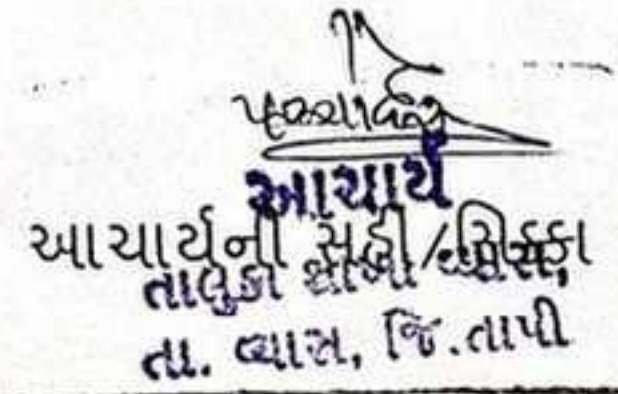 આચાર્ય
આચાર્યની સહી/સિક્કા
તાલુકા શાળા વ્યારા,
તા. વ્યારા, જિ.તાપી